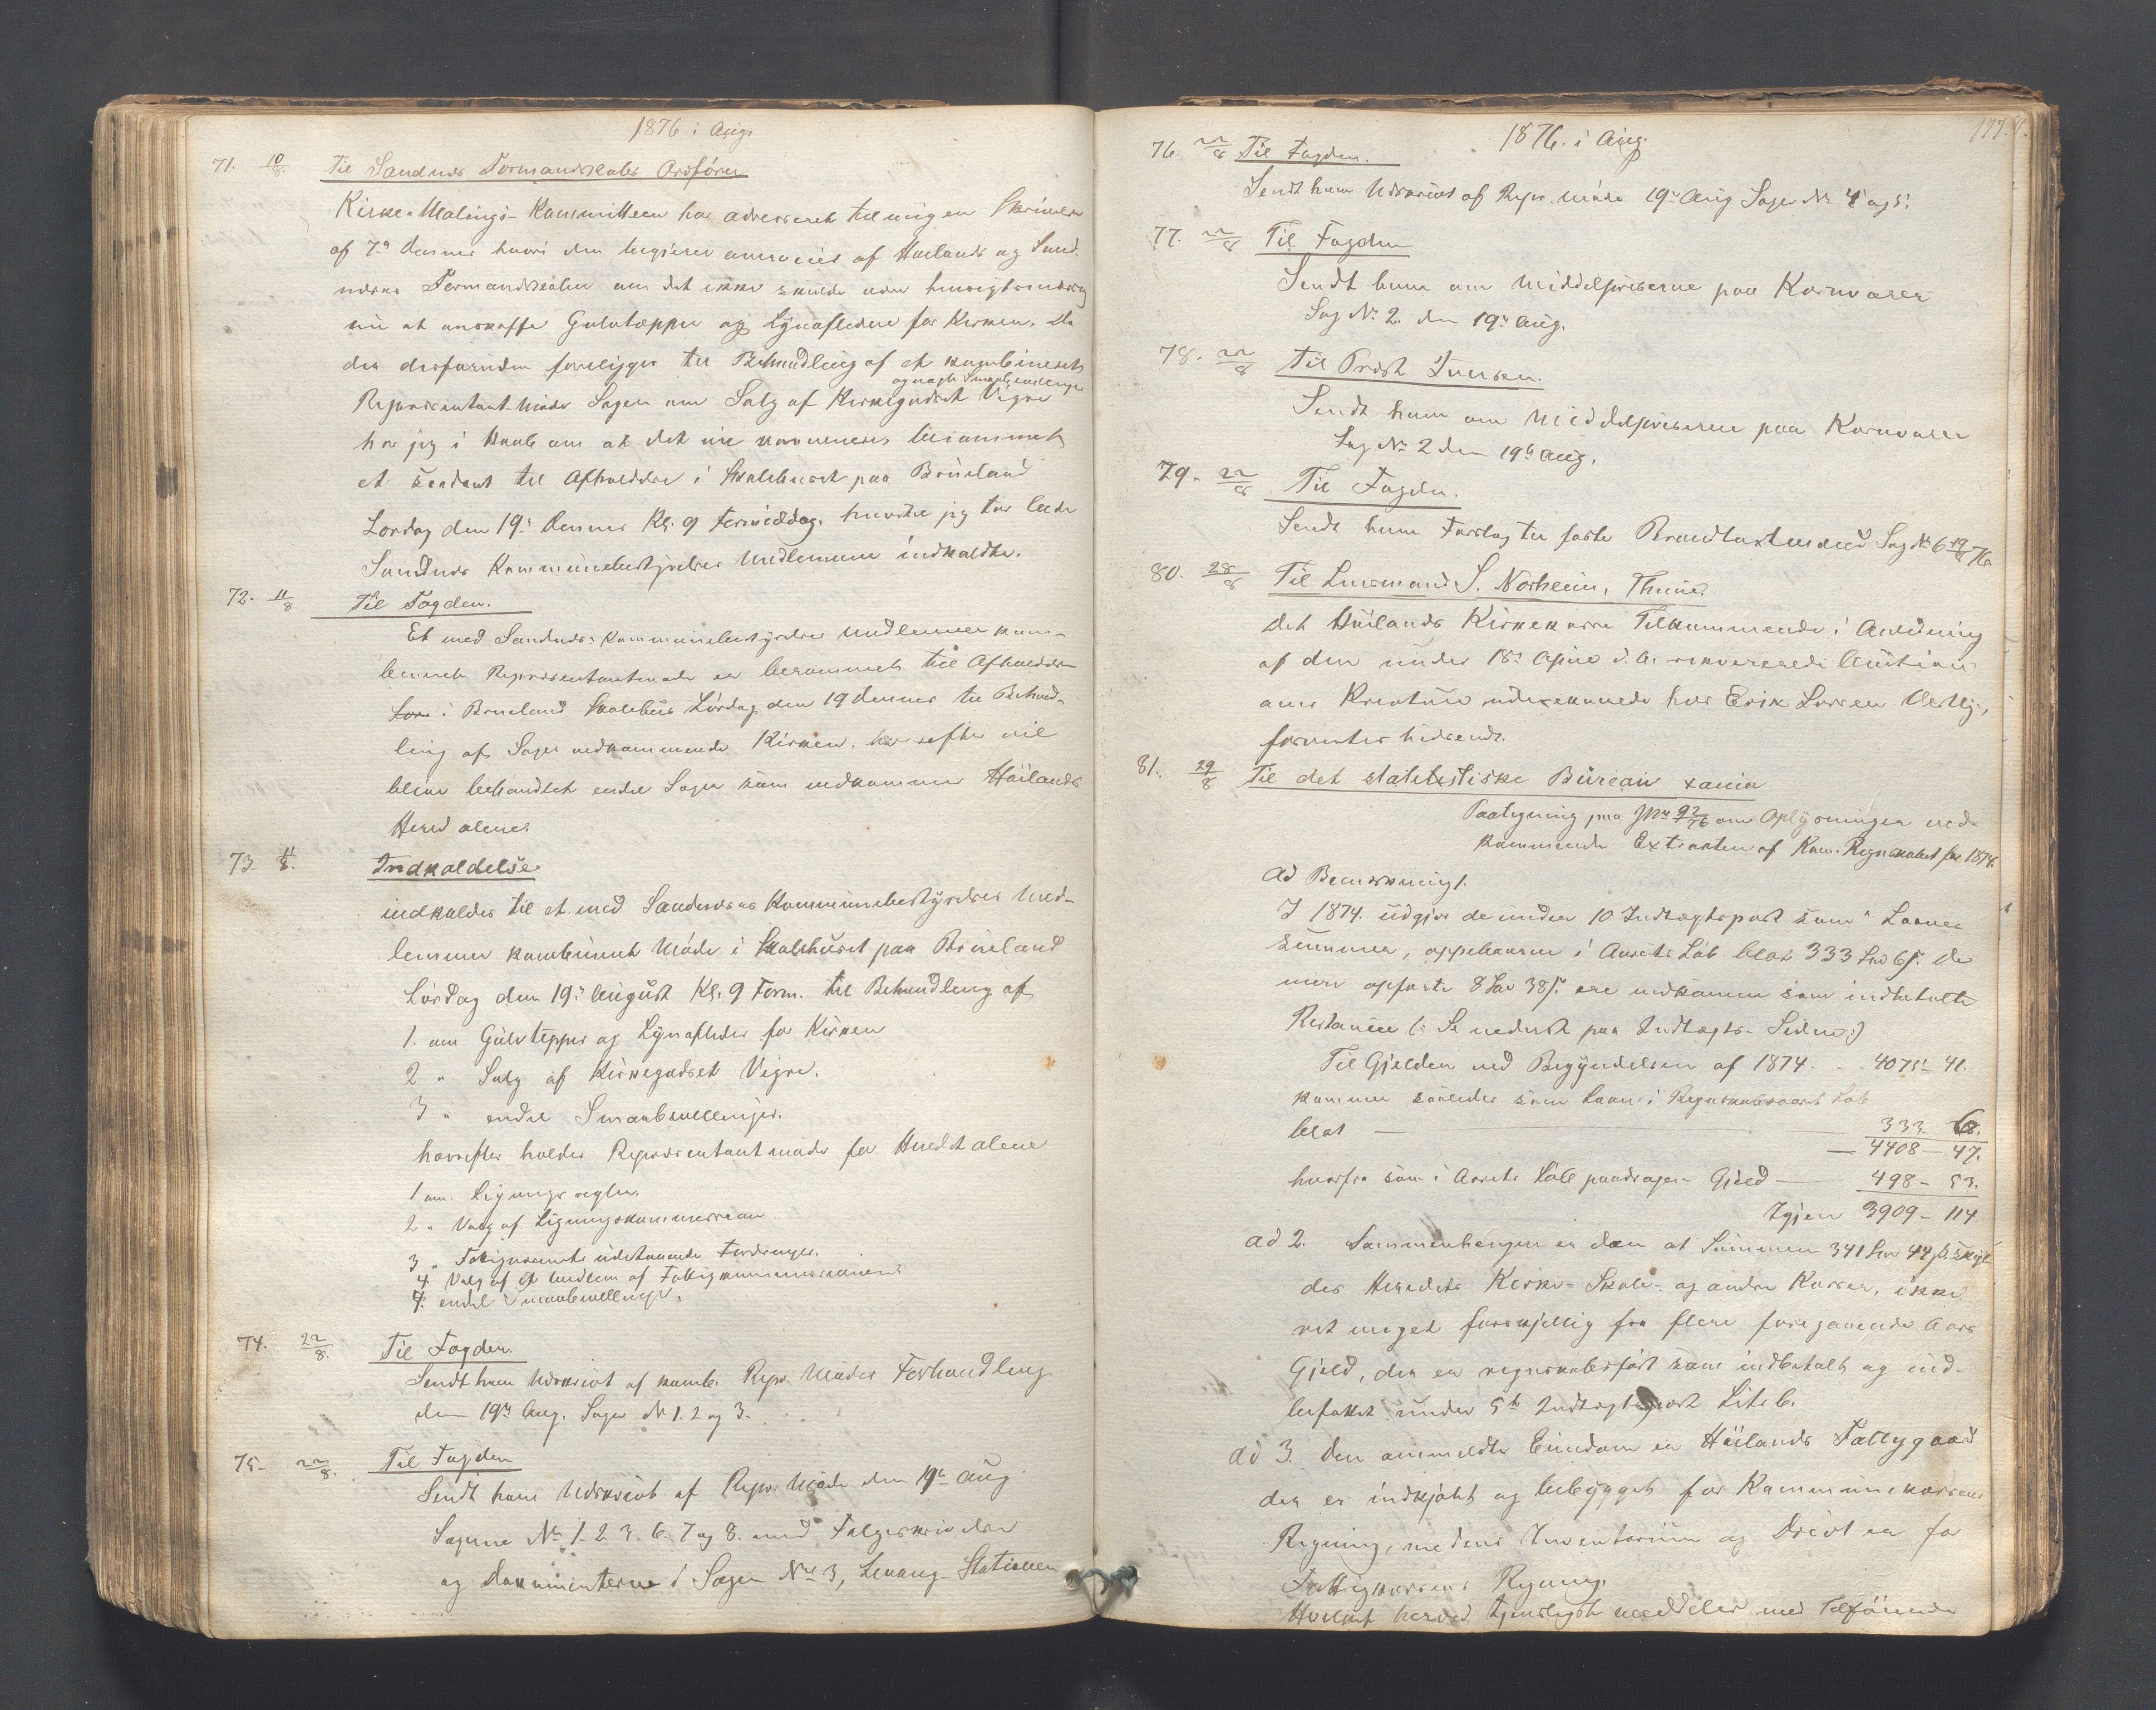 1876 i Aug.
71. 10/8. Til Sandnes Formandskabs Ordfører
Kirke-Malings-Kommitteen har adresseret til mig en Skrivelse
af 7de dennes hvori den begjærer om af Høilands og Sand-
næses Formandskaber om det ikke skulde være hensigtsmæssig
nu at anskaffe Gulvtæpper og Lynafledere for Kirken. Da
der desforuden foreligger til Behandling af et kombineret
og nogle Smaabevillinger
Repræsentant-Møde Sagen om Salg af Kirkegodset Vigre
har jeg i Haab om at det vil berammet
et saadant til Afholdelse i Skolehuset paa Brueland
Lørdag den 19de dennes Kl. 9 Formiddag, hvortil jeg tør bede
Sandnes Kommunebestyrelses Medlemmer indkaldte.
72. 11/8 Til Fogden.
Et med Sandnes Kommunebestyrelses Medlemmer kom-
bineret Repræsentantmøde er berammet til Afholdelse
i Brueland Skolehus Lørdag den 19 dennes til Behand-
ling af Sager vedkommende Kirken, herefter vil
blive behandlet endel Sager som vedkommer Høilands
Herred alene.
73. 11/8. Indkaldelse
indkaldes til et med Sandnæses Kommunebestyrelses Med-
lemmer kombineret Møde i Skolehuset paa Brueland
Lørdag den 19de August Kl. 9 Form. til Behandling af
1. om Gulvtepper og Lynafleder for Kirken
2 " Salg af Kirkegodset Vigre.
3 " endel Smaabevillinger.
hvorefter holdes Repræsentantmøde for Herredet alene
1 om. Ligningsregler.
2 " Valg af Ligningskommission
3 " Fattigvæsenets udestaaende Fordringer.
4 Valg af et Medlem af Fattigkommissionen
4. endel Smaabevillinger.
74. 22/8. Til Fogden.
Sendt ham Udskrivt af komb. Repr. Mødes Forhandling
den 19de Aug. Sager No 1. 2 og 3.
75- 22/8. Til Fogden
Sendt ham Udskrivt af Repr. Møde den 19de Aug
Sagerne No 1. 2. 3. 6. 7 og 8. med Følgeskrivelse
og Dokumenterne i Sagen No 3, Stationen
177.
1876. i Aug.
76. 22/8 Til Fogden.
Sendt ham Udskrivt af Repr. Møde 19de Aug Sager No 4 og 5.
77. 22/8 Til Fogden
Sendt ham om Middelpriserne paa Kornvarer
Sag No 2. den 19de Aug.
78. 22/8 Til Provst Iversen.
Sendt ham om Middelpriserne paa Kornvarer
Sag No 2 den 19de Aug.
79. 22/8 Til Fogden.
Sendt ham Forslag til faste Brandtaxtmænd Sag No 6 19/8 76
80. 28/8 Til Lensmand S. Norheim, Thime
Det Høilands Kirkekasse Tilkommende i Anledning
af den under 18de April d. A. rekvererede Auktion
over Kreature hos Erik Larsen Vestly,
forventes hidsendt.
81. 29/8 Til det statistiske Büreau Xania
Paategning paa 92/76 om Oplysninger ved-
kommende Extrakten af Kom. Regnskabet for 1874.
Ad Bemærkning 1.
I 1874. udgjør de under 10 Indtægtspost som "Laante
Summer, oppebaarne i Aarets Løb blot 333 Spd 6 s. De
mere opførte 8 Spd 38 s. ere indkomne som indbetalte
Restancer (: Se nederst paa Indtægts-Siden :)
Til Gjelden ved Begyndelsen af 1874. . . 4075- 41.
kommer saaledes som Laan i Regnskabsaarets Løb
blot — 333 6.
— 4408 — 47.
hvorfra som i Aarets Løb Gjeld — 498 - 53.
Igjen 3909 - 114
ad 2. Sammenhengen er den at Summen 341 Spd 44 s skyl-
des Herredets Kirke- Skole- og andre Kasser, ikke
ret meget forskjellig fra flere foregaaende Aars
Gjeld, der er regnskabsført som indbetalt og ind-
befattet under 5te Indtægtspost Litr b.
ad 3. Den anmeldte Eiendom er Høilands Fattiggaard
der er indkjøbt og bebygget for Kommunekassens
Regning, medens Inventarium og Drivt er for
Fattigkassens Regning.
Hvilket herved tjenstligst meddeles med Tilføiende